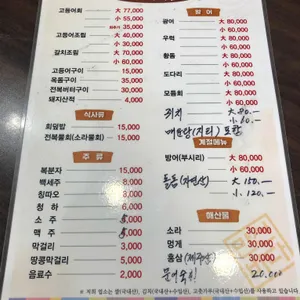 고등어회 大 77,000
小 55,000
35,000
고등어조림 大 40,000
小 30,000
갈치조림 大 50,000
小 35,000
고등어구이 15,000
옥돔구이 35,000
전복버터구이 30,000
돼지산적 4,000
식사류
회덮밥 15,000
전복물회(소라물회) 15,000
주 류
복분자 15,000
백세주 8,000
청하 6,000
소 주
맥 주
막걸리 3,000
땅콩막걸리 5,000
음료수 2,000
방 어
광어 大 80,000
小 60,000
우럭 大 80,000
小 60,000
황돔 大 80,000
小 60,000
도다리 大 80,000
小 60,000
모듬회 大 80,000
小 60,000
大 80.-
小 60.-
매운탕(지리) 포함
계절메뉴
방어(부시리) 大 80,000
小 60,000
돌돔(자연산) 大 150.-
小 120.-
해산물
소라 30,000
멍게 30,000
홍삼(제주산) 30,000
20,000
※ 저희 업소는 쌀(국내산), 김치(국내산+수입산), 고춧가루(국내산+수입산)를 사용하고 있습니다.